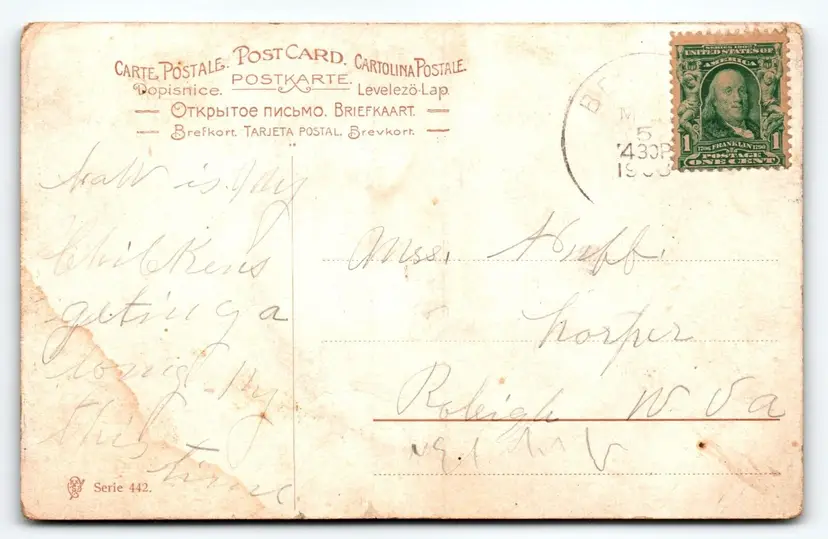 CARTE POSTALE. POST CARD. CARTOLINA POSTALE.
Dopisnice. POSTKARTE. Levelezö-Lap.
Открытое письмо. BRIEFKAART.
Brefkort. TARJETA POSTAL. Brevkort.
SERIES 1902
UNITED STATES OF
AMERICA
1 FRANKLIN 1
POSTAGE
ONE CENT
5
430P
haw is My
Chickens
geting a
long by
this
time
Mss. Huff.
Horper
Roleigh W Va
Serie 442.